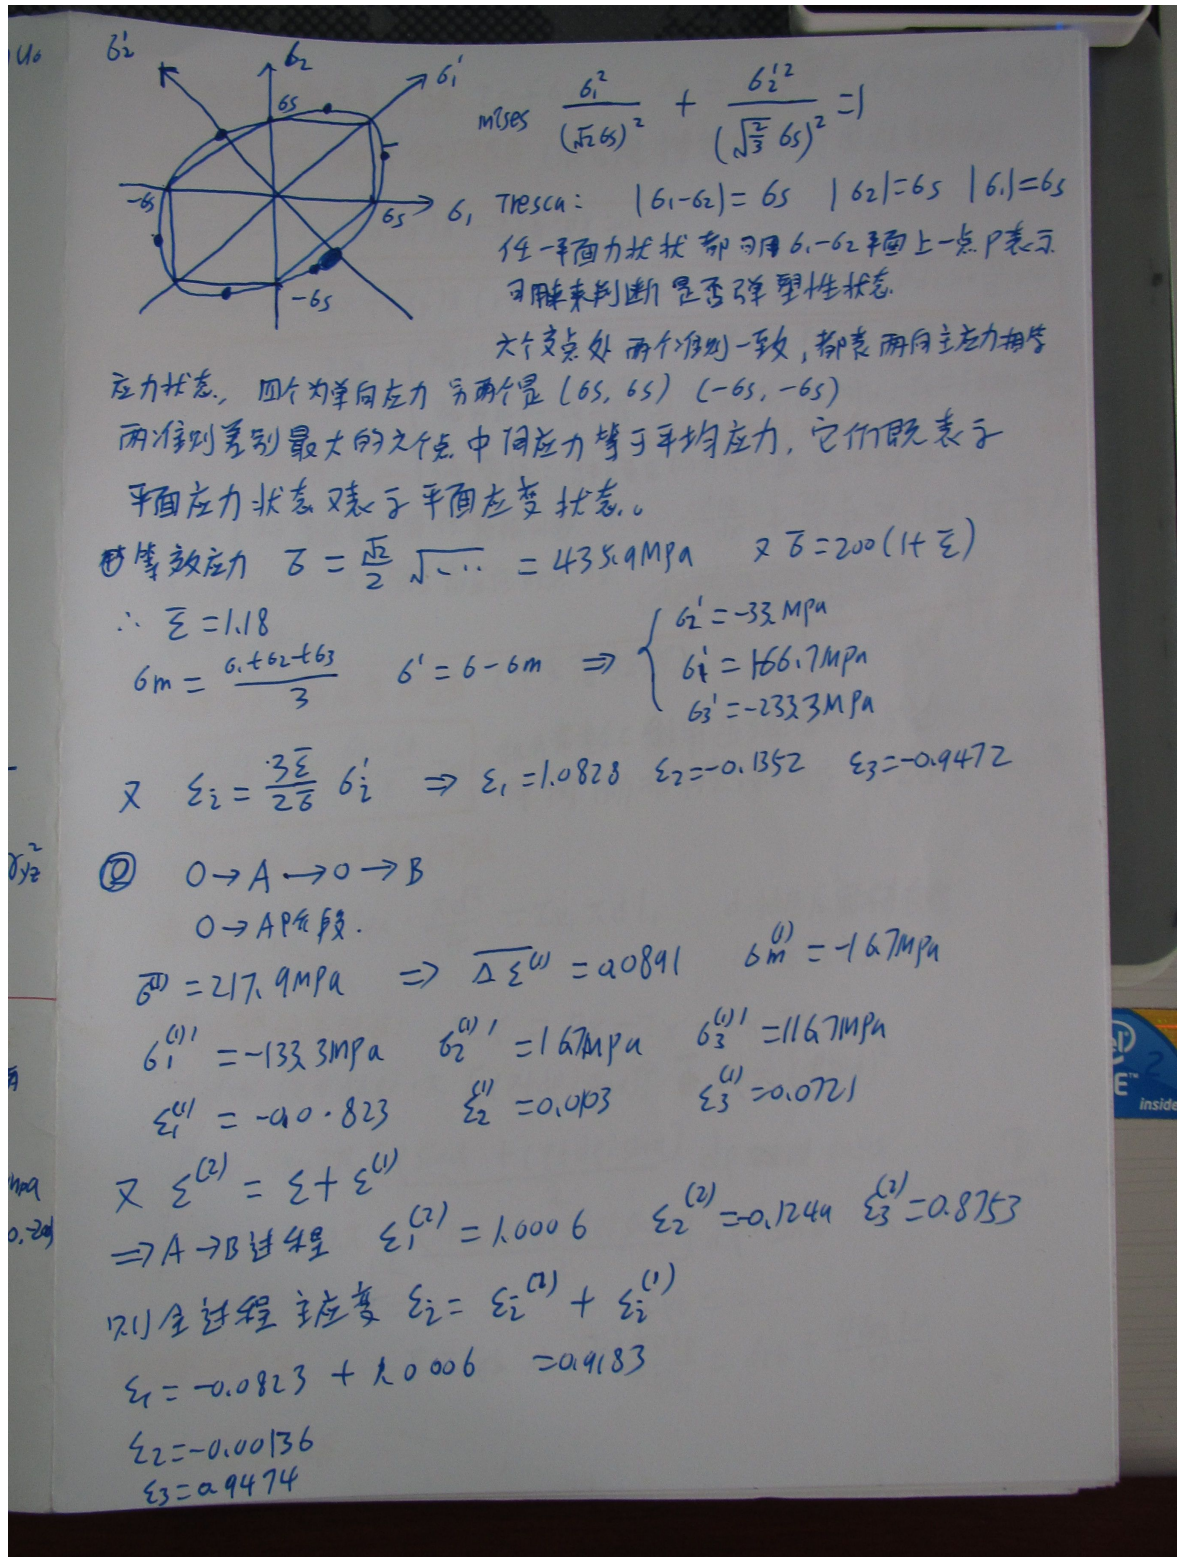 σ2' σ2 σ1'
σs
-σs σs σ1
-σs
mises σ1'²/(√2σs)² + σ2'²/(√(2/3) σs)² =1
Tresca: |σ1-σ2|= σs |σ2|=σs |σ1|=σs
任一平面力状状都可用σ1-σ2平面上一点P表示
可用来判断是否弹塑性状态
六个交点处两个准则一致,都表两向主应力相等
应力状态, 四个为单向应力 另两个是 (σs, σs) (-σs, -σs)
两准则差别最大的六个点中间应力等于平均应力, 它们既表示
平面应力状态又表示平面应变状态。
① 等效应力 σ̅ = √2/2 √···· = 435.9MPa 又 σ̅=200(1+ε̅)
∴ ε̅ =1.18
σm = (σ1+σ2+σ3)/3 σ' = σ-σm ⇒ { σ2'=-33. MPa
σ1' = 166.7MPa
σ3'=-233.3MPa
又 εi = 3ε̅/2σ̅ σi' ⇒ ε1=1.0828 ε2=-0.1352 ε3=-0.9472
② 0→A→0→B
0→A阶段.
σ̅⁽¹⁾ =217.9MPa ⇒ Δε̅⁽¹⁾ =0.0891 σm⁽¹⁾ = -16.7MPa
σ1⁽¹⁾' =-133.3mpa σ2⁽¹⁾' =16.7Mpa σ3⁽¹⁾' =116.7MPa
ε1⁽¹⁾ = -0.0.823 ε2⁽¹⁾ =0.0103 ε3⁽¹⁾=0.0721
又 ε⁽²⁾ = ε+ ε⁽¹⁾
⇒A→B过程 ε1⁽²⁾ =1.0006 ε2⁽²⁾=-0.1249 ε3⁽²⁾=0.8753
则全过程主应变 εi= εi⁽²⁾ + εi⁽¹⁾
ε1 = -0.0823 + 1.0006 =0.9183
ε2=-0.00136
ε3=0.9474
γyz²
mpa
inside